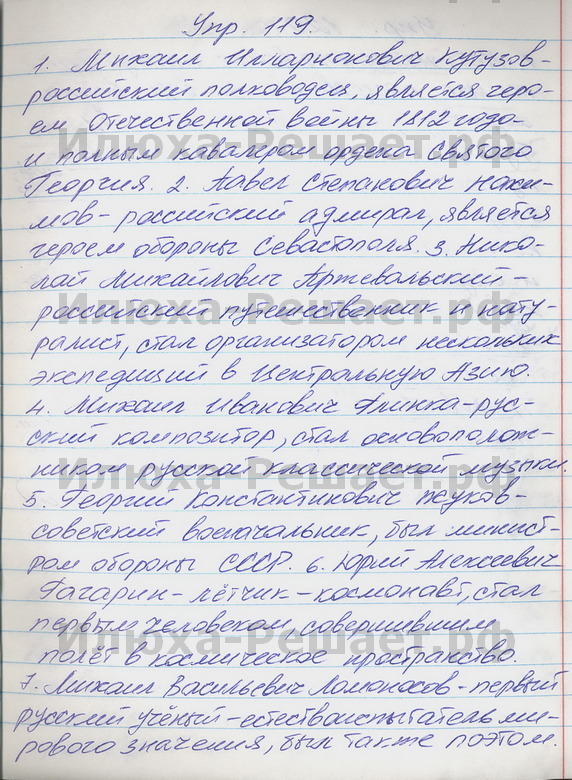 Упр. 119.
1. Михаил Илларионович Кутузов -
российский полководец, является геро-
ем Отечественной войны 1812 года
и полным кавалером ордена Святого
Георгия. 2. Павел Степанович Нахи-
мов - российский адмирал, является
героем обороны Севастополя. 3. Нико-
лай Михайлович Пржевальский -
российский путешественник и нату-
ралист, стал организатором нескольких
экспедиций в Центральную Азию.
4. Михаил Иванович Глинка - рус-
ский композитор, стал основополож-
ником русской классической музыки.
5. Георгий Константинович Жуков -
советский военачальник, был минист-
ром обороны СССР. 6. Юрий Алексеевич
Гагарин - лётчик - космонавт, стал
первым человеком, совершившим
полёт в космическое пространство.
7. Михаил Васильевич Ломоносов - первый
русский учёный - естествоиспытатель ми-
рового значения, был также поэтом.
Илюха-Решает.рф
Илюха-Решает.рф
Илюха-Решает.рф
Илюха-Решает.рф